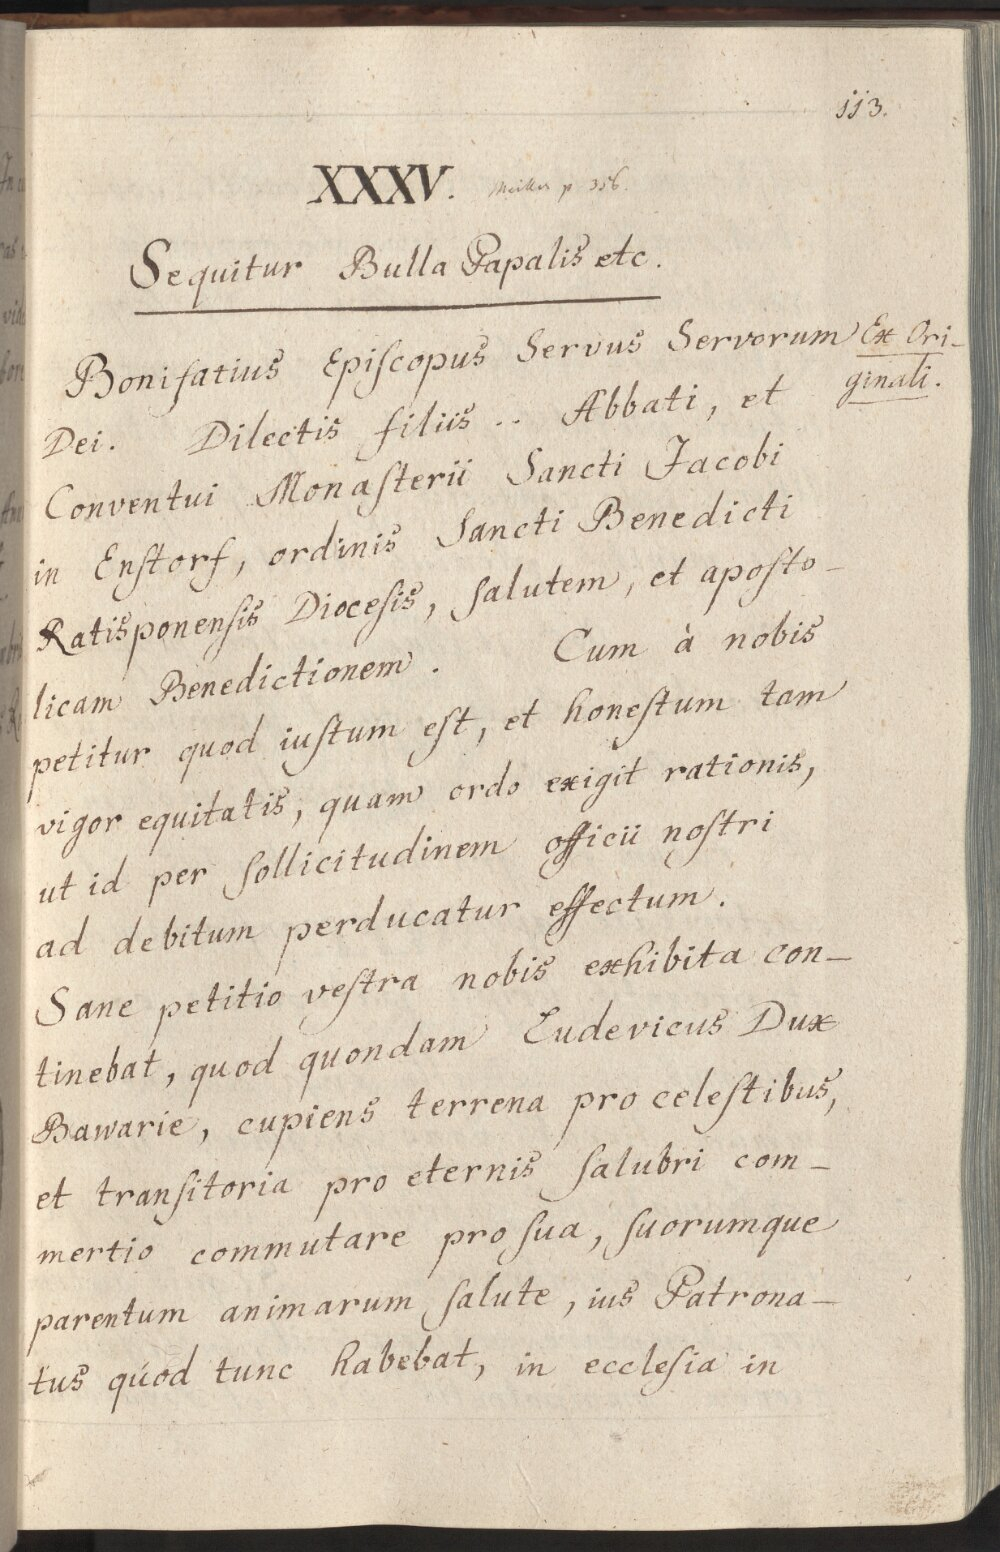 113.
XXXV.
p 356.
Sequitur Bulla Papalis etc.
Bonifatius Episcopus Servus Servorum
Ex Ori-
ginali.
Dei. Dilectis filiis .. Abbati, et
Conventui Monasterii Sancti Jacobi
in Enstorf, ordinis Sancti Benedicti
Ratisponensis Diocesis, salutem, et aposto-
licam Benedictionem. Cum à nobis
petitur quod iustum est, et honestum tam
vigor equitatis, quam ordo exigit rationis,
ut id per sollicitudinem officii nostri
ad debitum perducatur effectum.
Sane petitio vestra nobis exhibita con-
tinebat, quod quondam Ludevicus Dux
Bawarie, cupiens terrena pro celestibus,
et transitoria pro eternis salubri com-
mertio commutare pro sua, suorumque
parentum animarum salute, ius Patrona-
tus quod tunc habebat, in ecclesia in